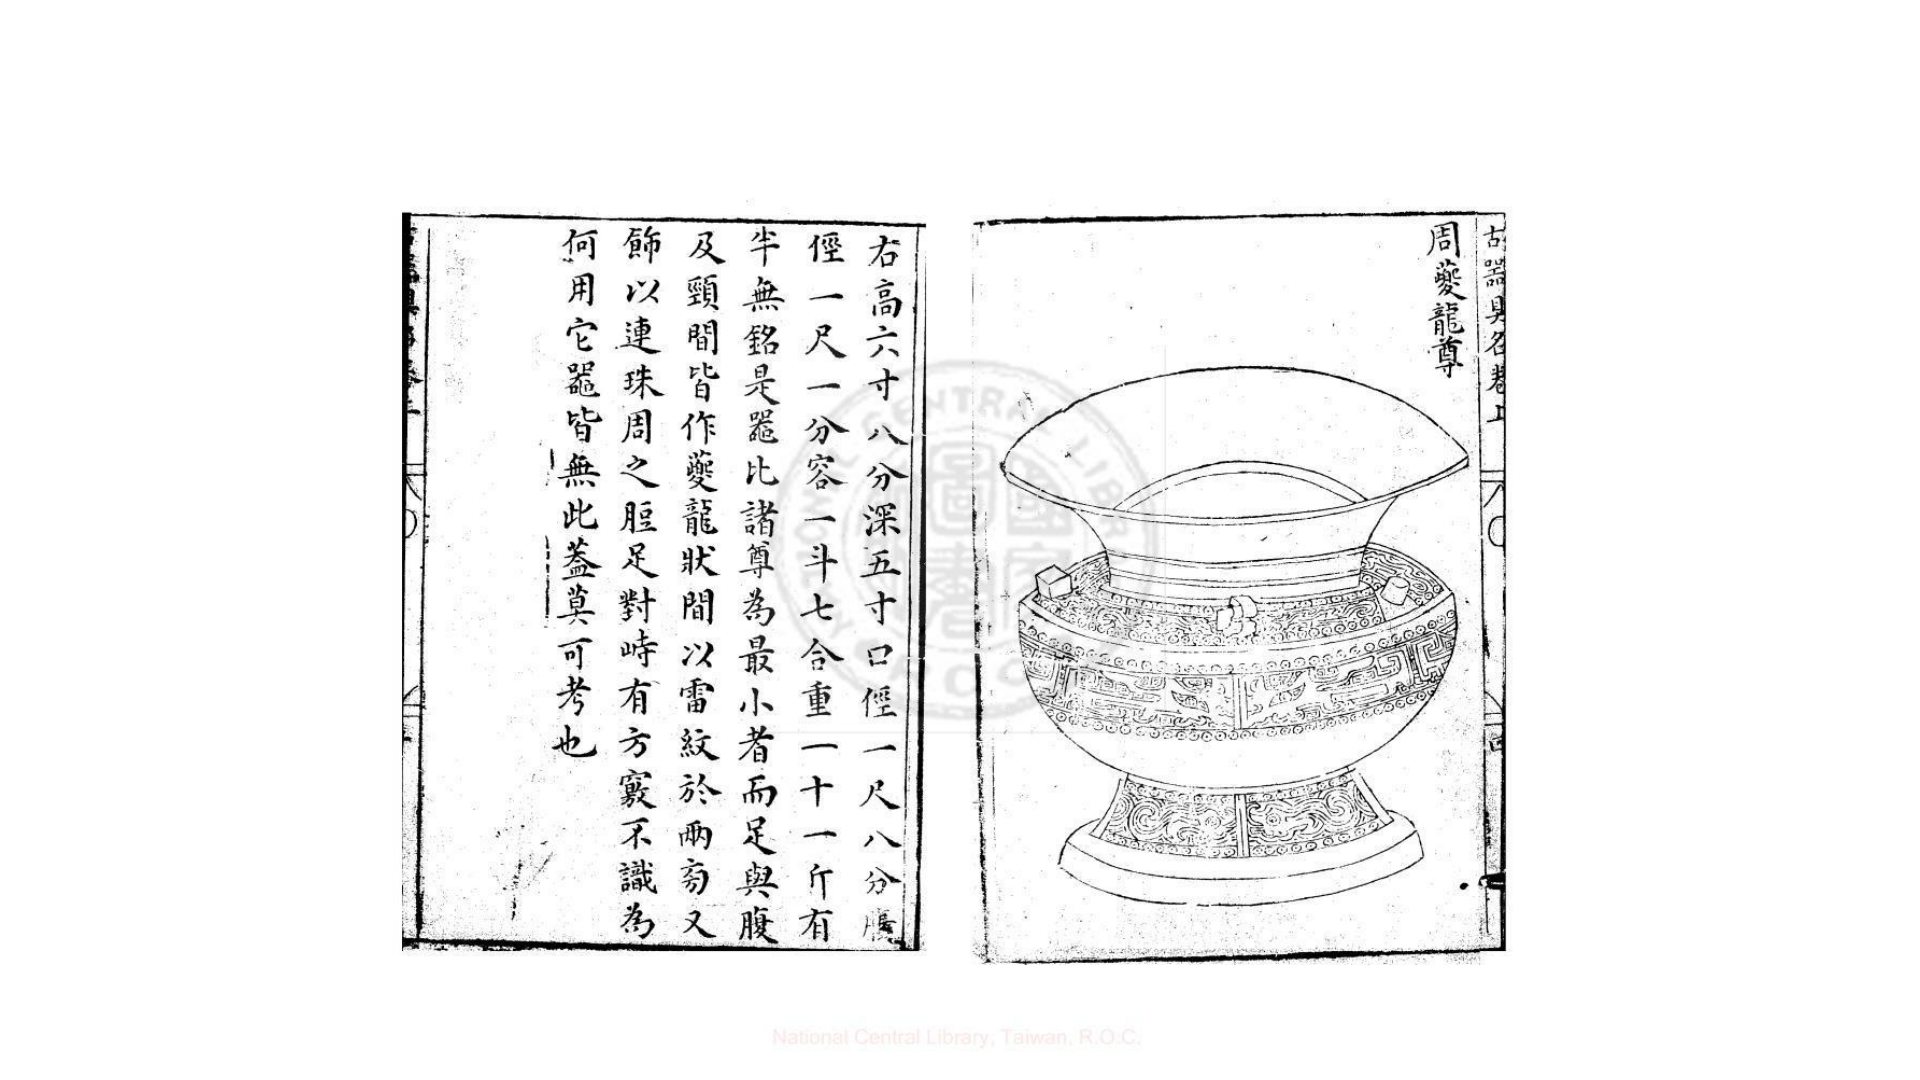 古噐具名卷上
周夔龍尊
右高六寸八分深五寸口俓一尺八分腹
俓一尺一分容一斗七合重一十一斤有
半無銘是噐比諸尊為最小者而足與腹
及頸間皆作夔龍狀間以雷紋於兩旁又
飾以連珠周之脰足對峙有方竅不識為
何用它噐皆無此蓋莫可考也
National Central Library, Taiwan, R.O.C.